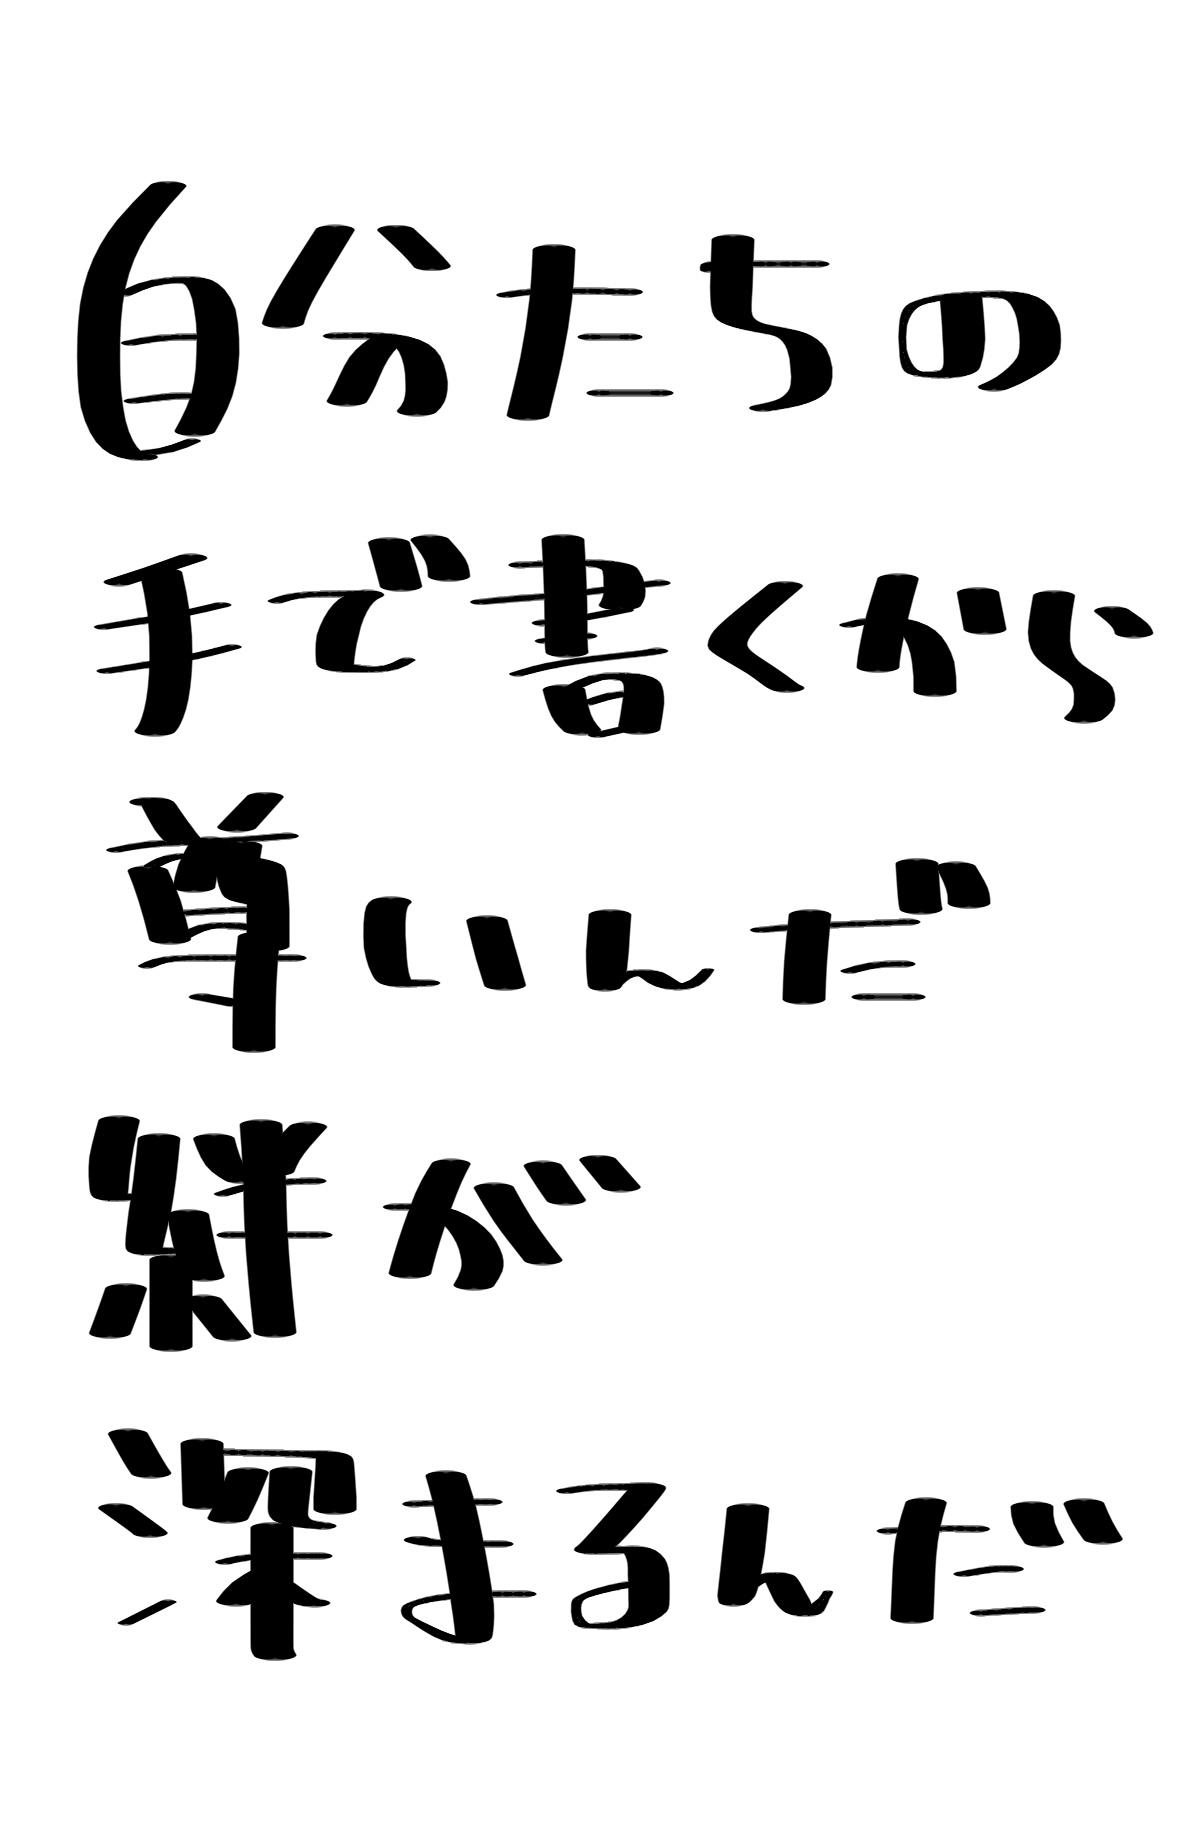 自分たちの
手で書くから
尊いんだ
絆が
深まるんだ